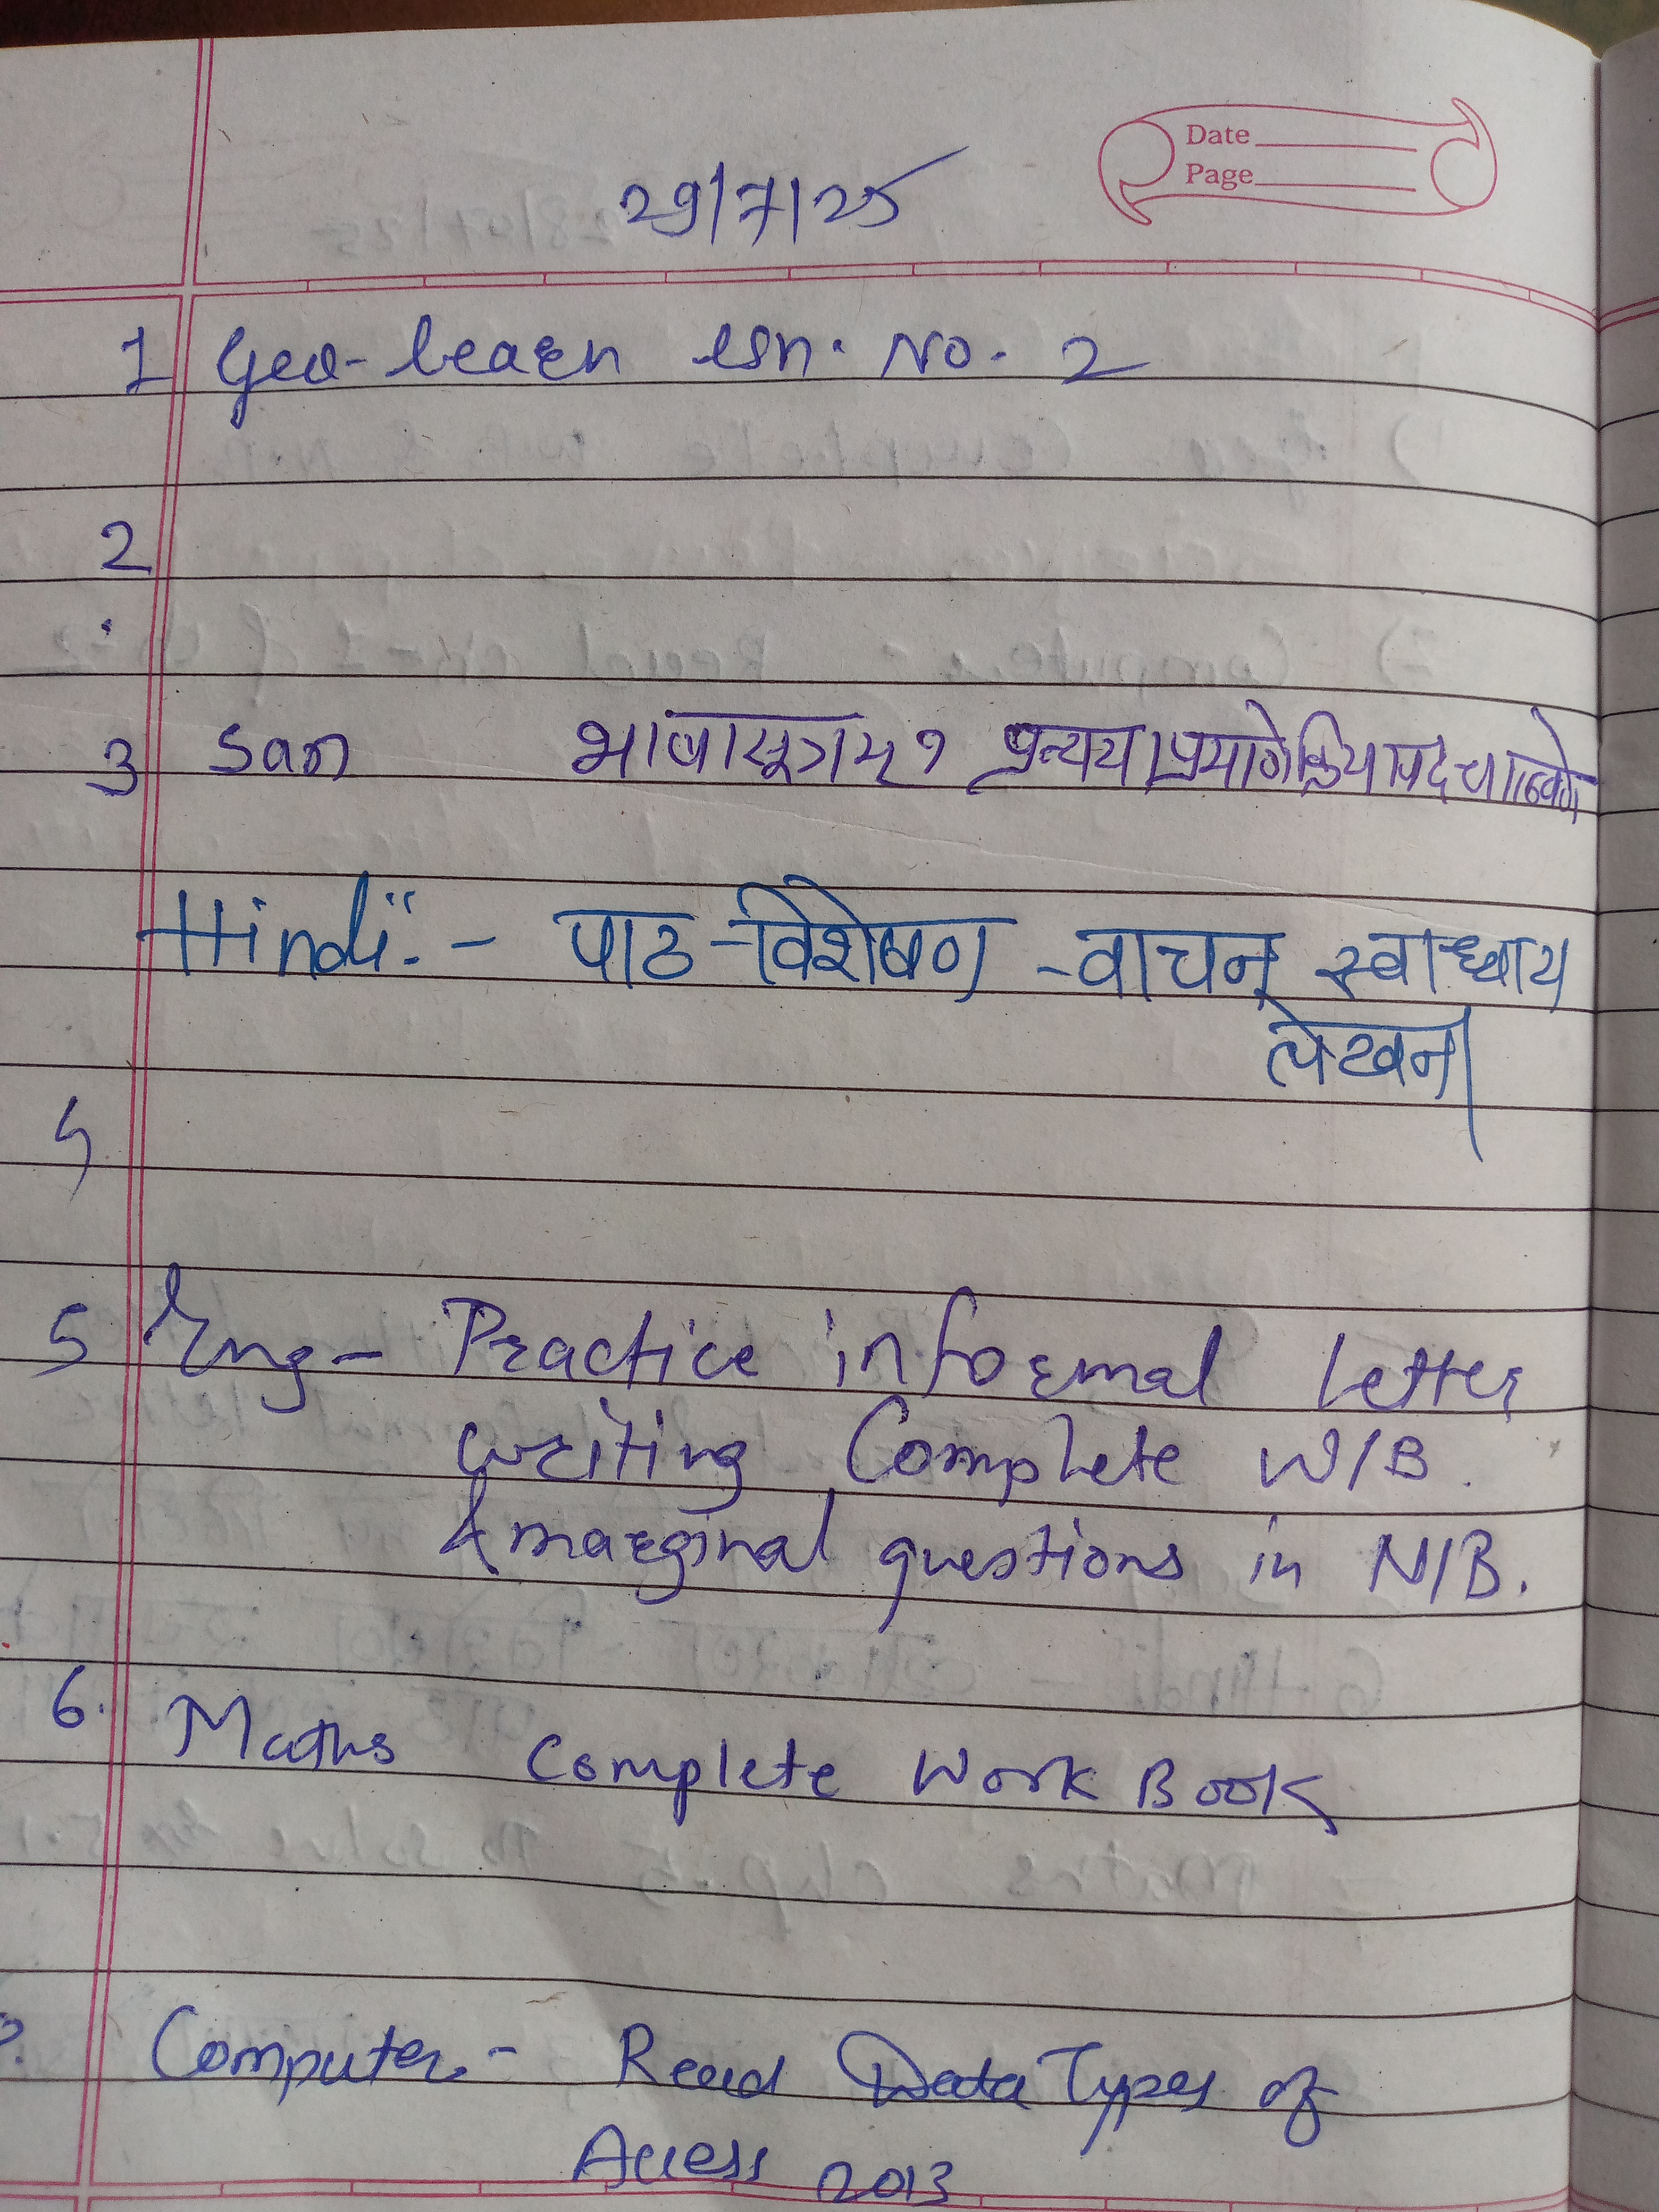 Date
Page
29/7/25
1 Geo- learn lsn. No. 2
2
3 San भाषासूत्रम् १ प्रत्यय
Hindi:- पाठ-विशेषण -वाचन् स्वाध्याय
लेखन।
4
5 Eng- Practice informal letter
writing Complete W/B.
& marginal questions in N/B.
6. Maths Complete Work Book
Computer- Read Data Types of
Access 2013